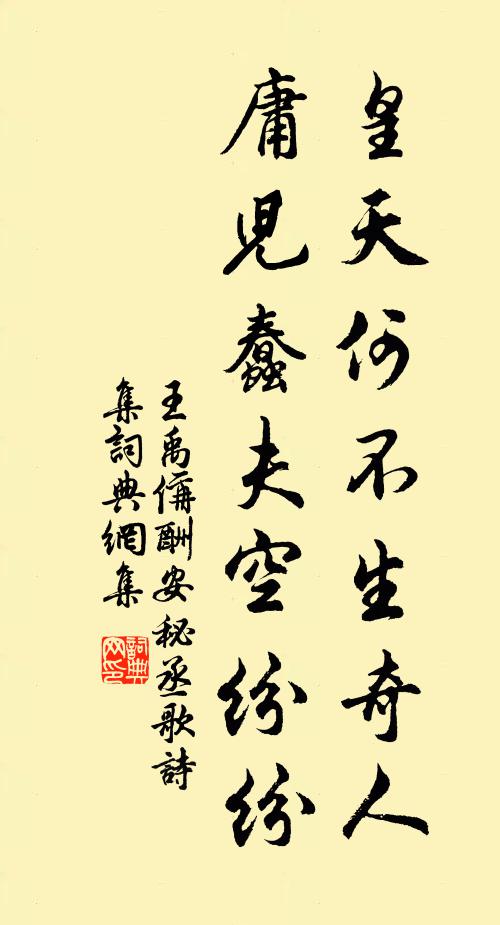 皇天何不生奇人
庸兒蠢夫空紛紛
王禹偁酬安秘丞歌詩
集詞典網集
詞典網印